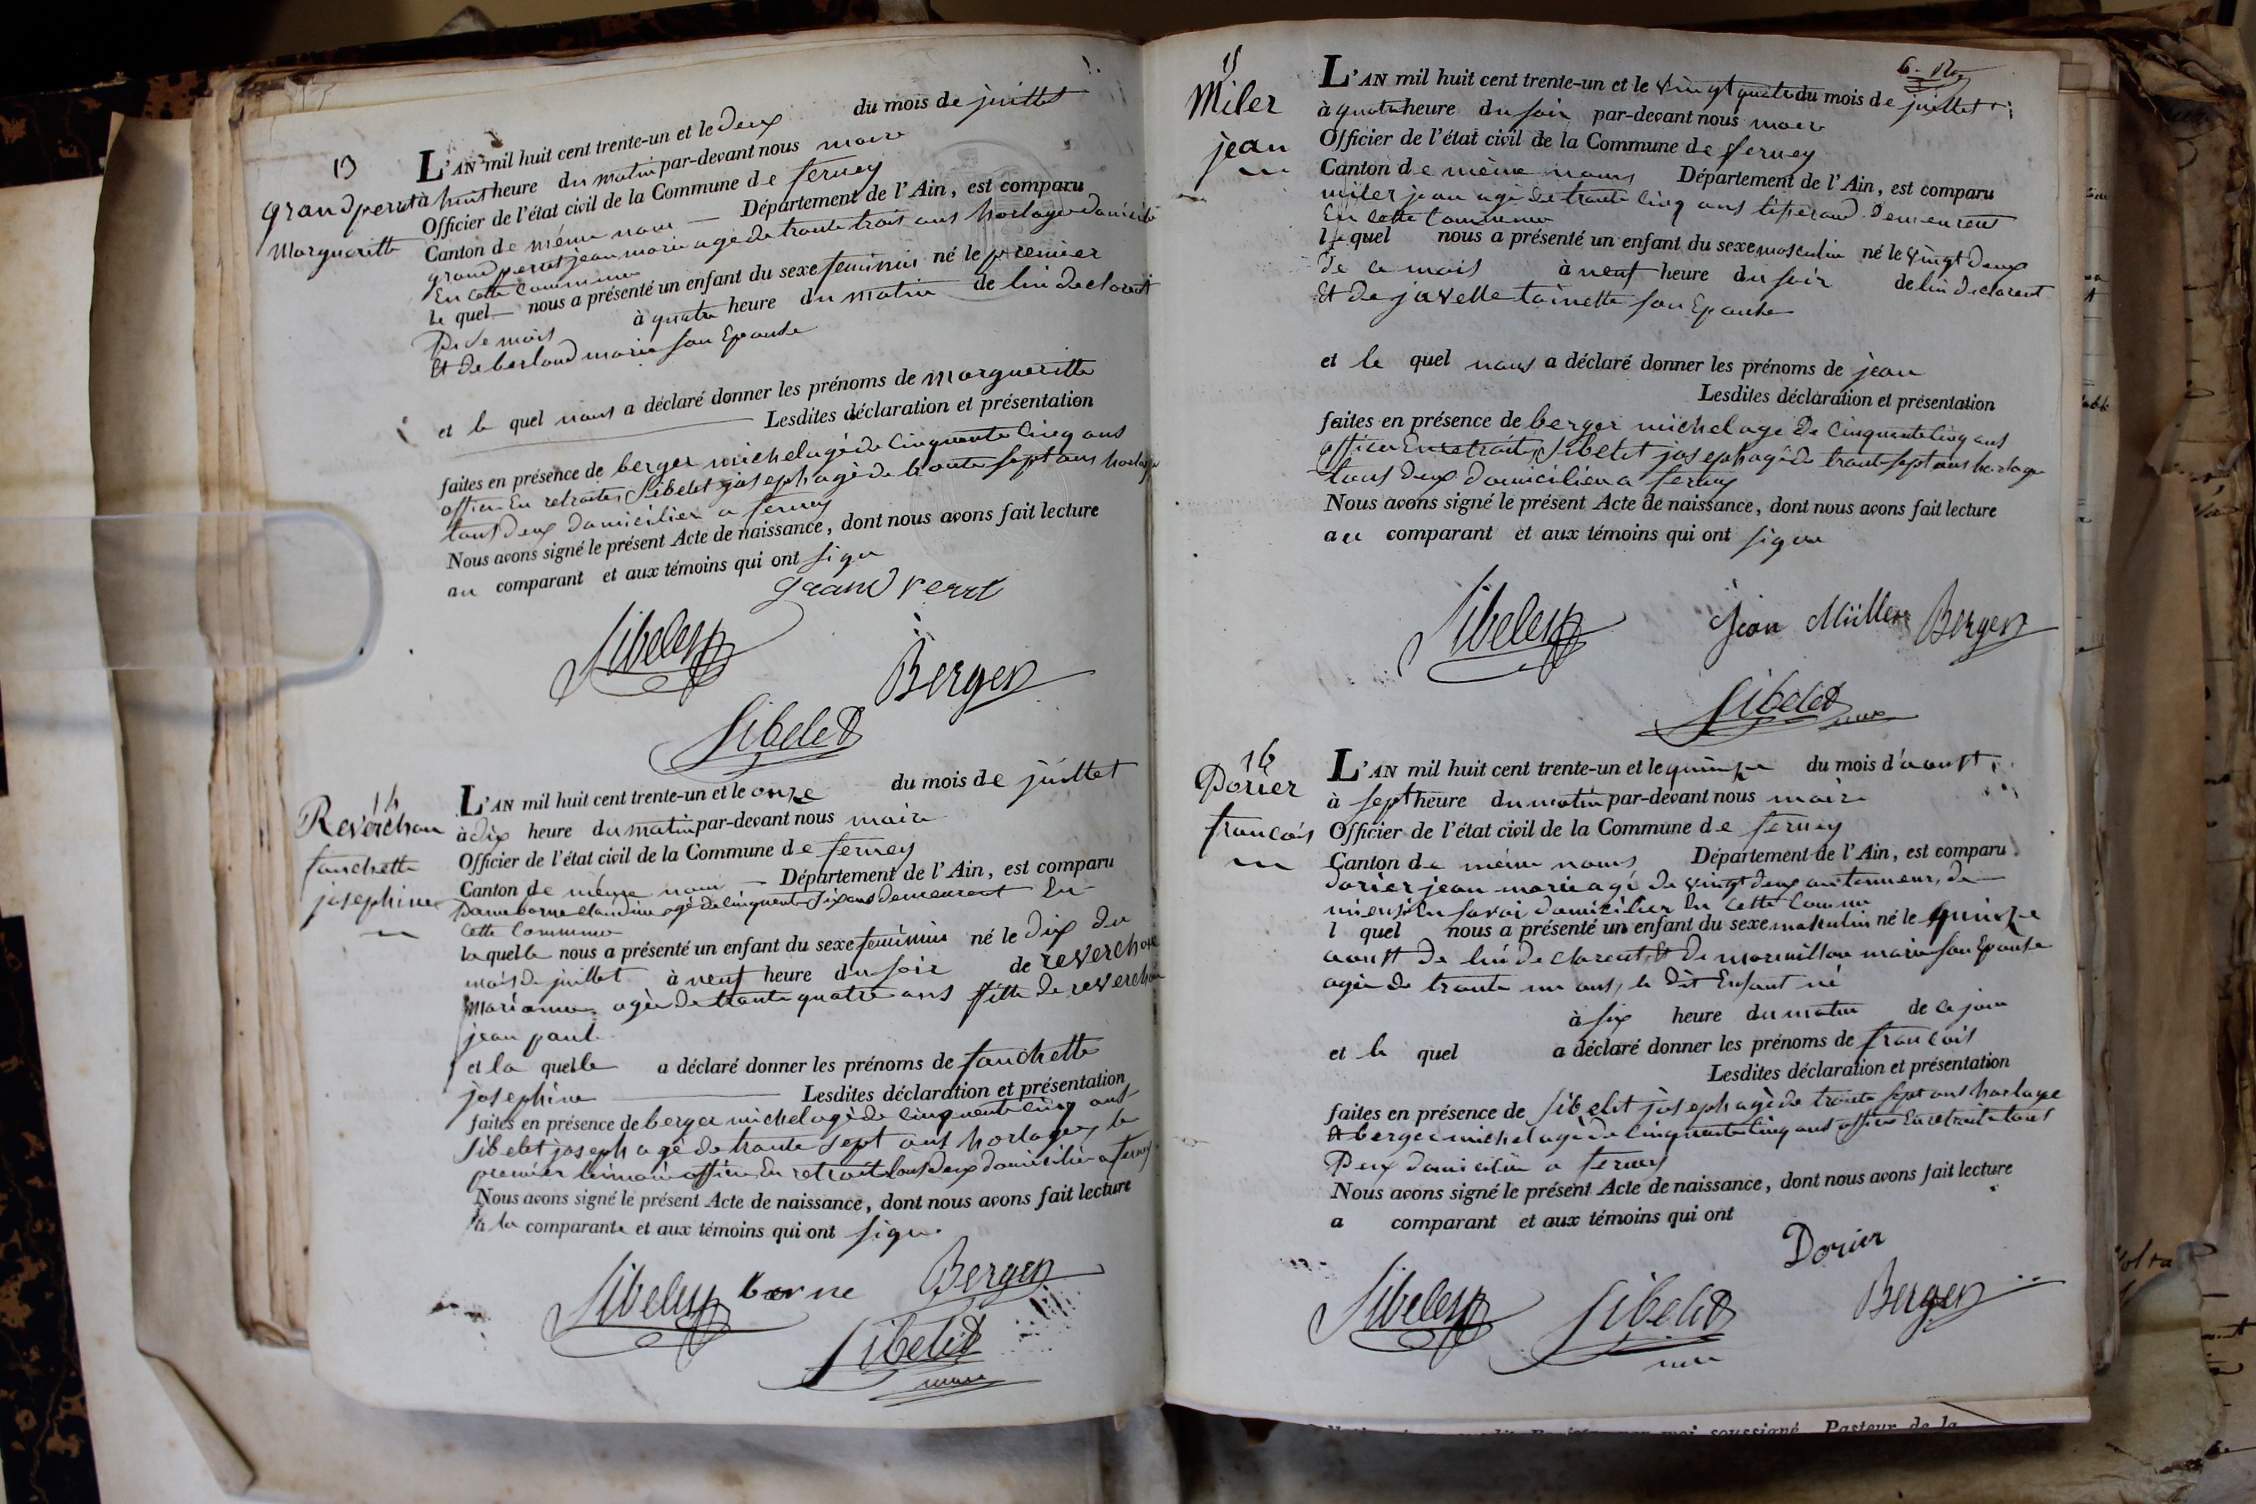 13
grandperret
Margueritte
L'AN mil huit cent trente-un et le deux du mois de juillet
à huit heure du matin par-devant nous maire
Officier de l'état civil de la Commune de ferney
Canton de même nom Département de l'Ain, est comparu
grandperret jean marie agé de trante trois ans horloger domicilié
En cette Commune
le quel nous a présenté un enfant du sexe feminin né le premier
De ce mois à quatre heure du matin de lui declarent
Et de berloud marie son Epouse
et le quel nous a déclaré donner les prénoms de margueritte
Lesdites déclaration et présentation
faites en présence de berger michel agé de Cinquante Cinq ans
officier En retraite, Sibelet joseph agé de trante sept ans horloge
tous deux domicilier a ferney
Nous avons signé le présent Acte de naissance, dont nous avons fait lecture
au comparant et aux témoins qui ont signe
grand perret
Sibelet
Berger
Sibelet
14
Reverchon
fanchette
josephine
L'AN mil huit cent trente-un et le onze du mois de juillet
à dix heure du matin par-devant nous maire
Officier de l'état civil de la Commune de ferney
Canton de même nom Département de l'Ain, est comparu
Dame borne claudine agé de cinquante six ans demeurent En
Cette Commune
la quelle nous a présenté un enfant du sexe feminin né le dix du
mois de juillet à neuf heure du soir de reverchon
Marianne agée de trante quatre ans fille de reverchon
jean paul
et la quelle a déclaré donner les prénoms de fanchette
josephine Lesdites déclaration et présentation
faites en présence de berger michel agé de cinquente cinq ans
Sibelet joseph agé de trante sept ans horloger, le
premier témoin officier En retraite tous deux domicilier a ferney
Nous avons signé le présent Acte de naissance, dont nous avons fait lecture
à la comparante et aux témoins qui ont signe
Sibelet borne Berger
Sibelet
maire
15
Miler
jean
L'AN mil huit cent trente-un et le vingt quatre du mois de juillet
à quatre heure du soir par-devant nous maire
Officier de l'état civil de la Commune de ferney
Canton de même nom Département de l'Ain, est comparu
miler jean agé de trante cinq ans tisserand Demeurent
En cette Commune
lequel nous a présenté un enfant du sexe masculin né le vingt deux
de ce mois à neuf heure du soir de lui declarent
Et de javelle toinette son Epouse
et le quel nous a déclaré donner les prénoms de jean
Lesdites déclaration et présentation
faites en présence de berger michel agé De Cinquante Cinq ans
officier En retraite, Sibelet joseph agé de trante sept ans horloge
tous deux domicilier a ferney
Nous avons signé le présent Acte de naissance, dont nous avons fait lecture
au comparant et aux témoins qui ont signe
Sibelet Jean Müller Bergen
Sibelet
maire
16
Dorier
francois
L'AN mil huit cent trente-un et le quinze du mois d'aoust
à sept heure du matin par-devant nous maire
Officier de l'état civil de la Commune de ferney
Canton de même nom Département de l'Ain, est comparu
dorier jean marie agé de vingt deux ans
domicilier En cette Commune
l quel nous a présenté un enfant du sexe masculin né le quinze
aoust de lui declarent Et de marie son Epouse
agée de trante un ans, le Dit Enfant né
à six heure du matin de ce jour
et le quel a déclaré donner les prénoms de francois
Lesdites déclaration et présentation
faites en présence de Sibelet joseph agé de trante sept ans horloge
Et berger michel agé de Cinquante Cinq ans officier En retraite tous
Deux domicilier a ferney
Nous avons signé le présent Acte de naissance, dont nous avons fait lecture
a comparant et aux témoins qui ont
Dorier
Sibelet Sibelet Bergen
maire
soussigné, Pasteur de la